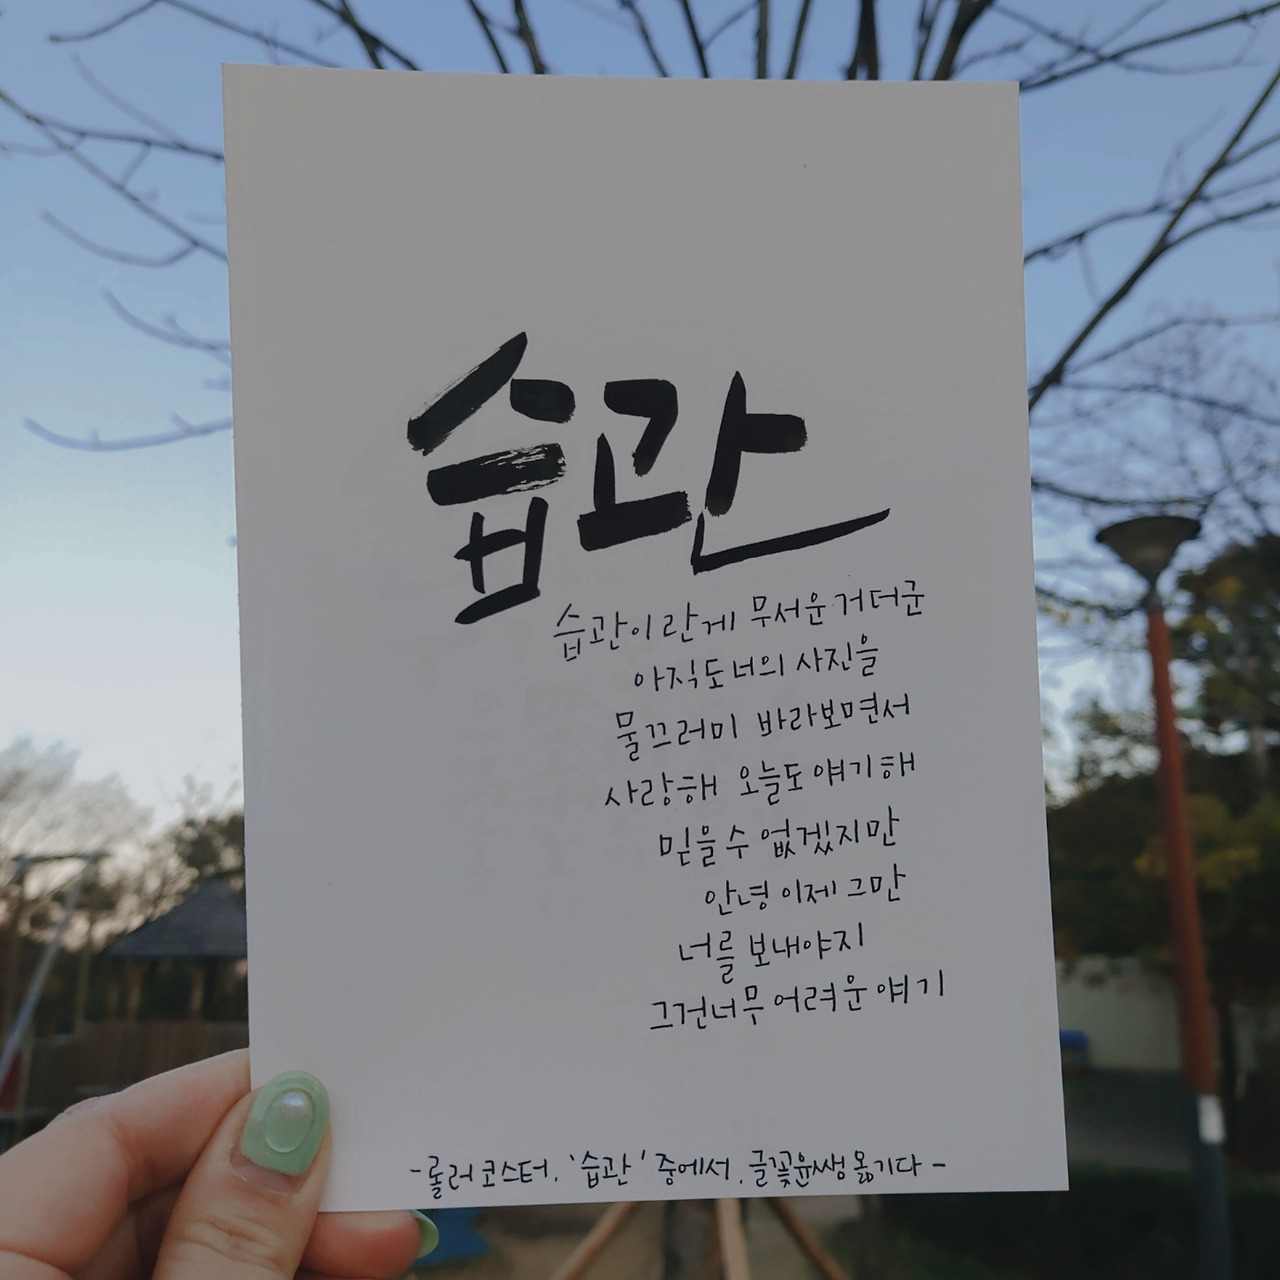 습관
습관이란게 무서운거더군
아직도 너의 사진을
물끄러미 바라보면서
사랑해 오늘도 얘기해
믿을 수 없겠지만
안녕 이제 그만
너를 보내야지
그건너무 어려운 얘기
-롤러코스터, '습관' 중에서, 글꽃윤쌤 옮기다-